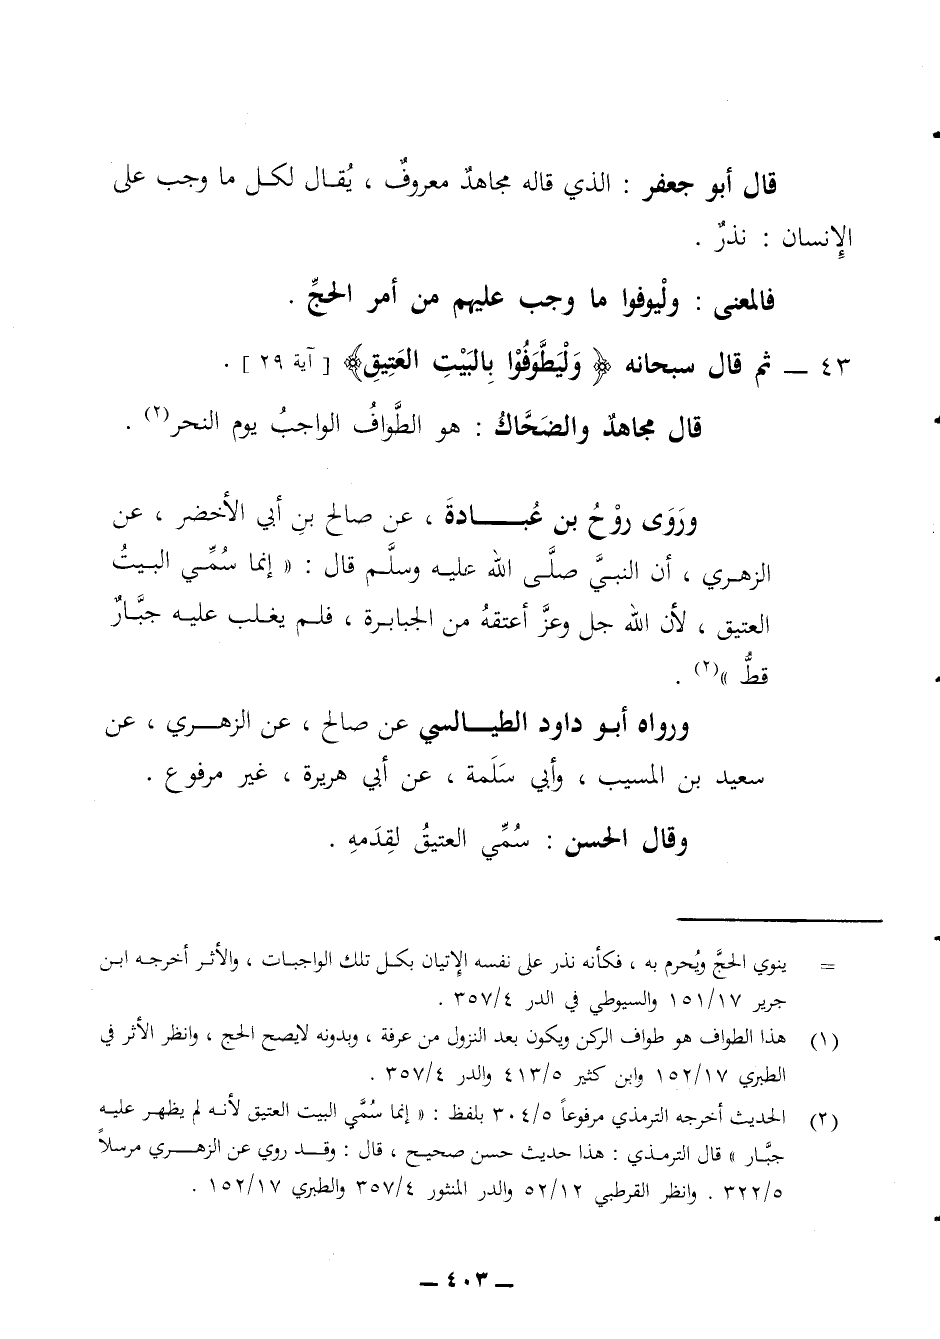 قال أبو جعفر : الذي قاله مجاهدٌ معروفٌ ، يُقال لكل ما وجب على
الإنسان : نذرٌ .
فالمعنى : ولْيوفوا ما وجب عليهم من أمر الحجِّ .
٤٣ ـ ثم قال سبحانه ﴿ وَلْيَطَّوَفُوْا بِالبَيْتِ العَتِيقِ﴾ [ آية ٢٩ ] .
قال مجاهدٌ والضَحَّاكُ : هو الطَّوافُ الواجبُ يوم النحر(٢) .
ورَوَى روْحُ بن عُبادةَ ، عن صالح بنِ أبي الأخضر ، عن
الزهري ، أن النبيَّ صلَّى الله عليه وسلَّم قال : « إنما سُمِّي البيتُ
العتيق ، لأن الله جل وعزَّ أعتقهُ من الجبابرة ، فلم يغلب عليه جبَّارٌ
قطُّ »(٢) .
ورواه أبو داود الطيالسي عن صالح ، عن الزهري ، عن
سعيد بن المسيب ، وأبي سَلَمة ، عن أبي هريرة ، غير مرفوع .
وقال الحسن : سُمِّي العتيقُ لقِدَمهِ .
= ينوي الحجَّ ويُحرم به ، فكأنه نذر على نفسه الإتيان بكل تلك الواجبات ، والأثر أخرجه ابن
جرير ١٥١/١٧ والسيوطي في الدر ٣٥٧/٤ .
(١) هذا الطواف هو طواف الركن ويكون بعد النزول من عرفة ، وبدونه لايصح الحج ، وانظر الأثر في
الطبري ١٥٢/١٧ وابن كثير ٤١٣/٥ والدر ٣٥٧/٤ .
(٢) الحديث أخرجه الترمذي مرفوعاً ٣٠٤/٥ بلفظ : « إنما سُمَّي البيت العتيق لأنه لم يظهر عليه
جبَّار » قال الترمذي : هذا حديث حسن صحيح ، قال : وقد روي عن الزهري مرسلاً
٣٢٢/٥ . وانظر القرطبي ٥٢/١٢ والدر المنثور ٣٥٧/٤ والطبري ١٥٢/١٧ .
ـ ٤٠٣ ـ